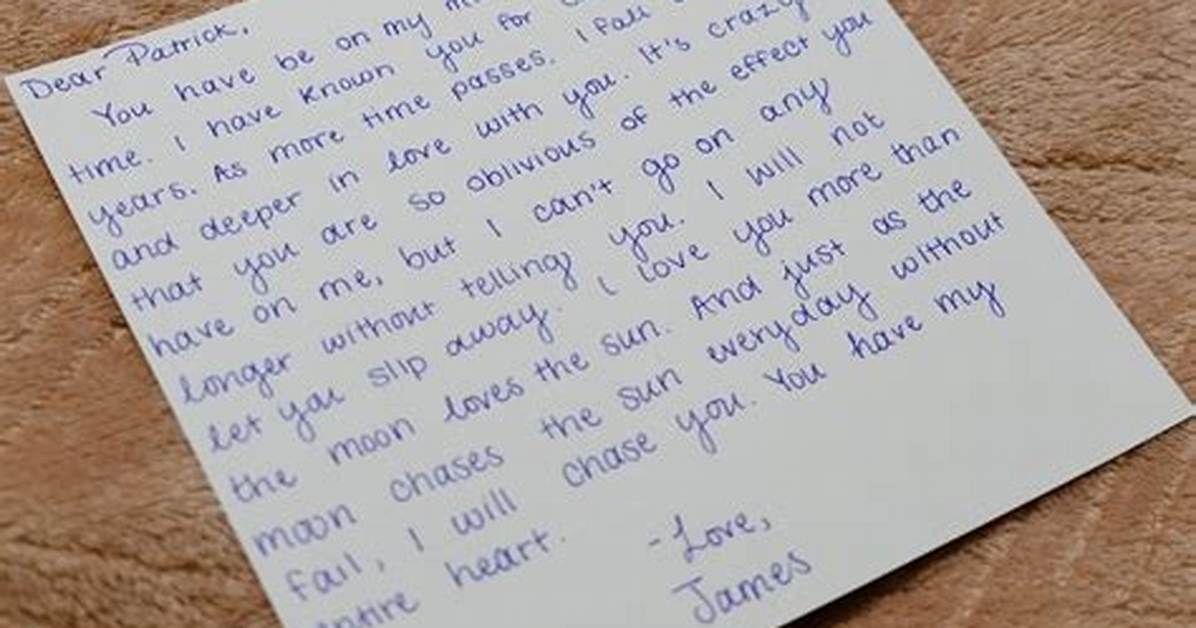 Dear Patrick,
You have be on my
time. I have known you for
years. As more time passes. I fall
and deeper in love with you. It's crazy
that you are so oblivious of the effect you
have on me, but I can't go on any
longer without telling you. I will not
let you slip away. I love you more than
the moon loves the sun. And just as the
moon chases the sun everyday without
fail, I will chase you. You have my
entire heart.
-Love,
James